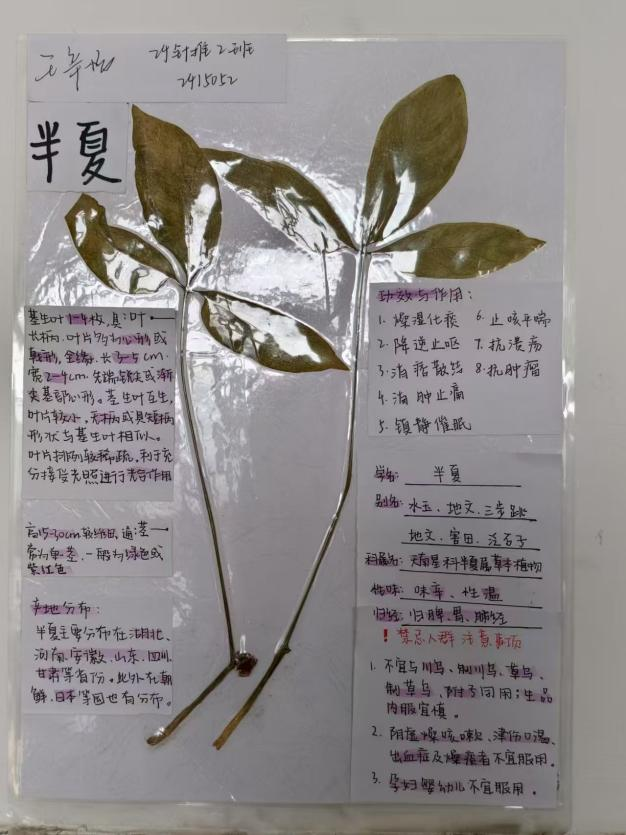 24针推2班
2415052
半夏
基生叶1-4枚,具叶一
长柄.叶片多为心形或
戟形,全缘.长3-5cm.
宽2-4cm.先端锐尖或渐
尖基部心形。茎生叶互生,
叶片较小,无柄或具短柄
形状与基生叶相似。
叶片排列较稀疏,利于充
分接受光照进行光合作用
高15-30cm较细
常为单茎,一般为绿色或
紫红色
产地分布:
半夏主要分布在湖北、
河南、安徽、山东、四川、
甘肃等省份。此外在朝
鲜、日本等国也有分布。
功效与作用:
1. 燥湿化痰 6. 止咳平喘
2. 降逆止呕 7. 抗溃疡
3. 消痞散结 8. 抗肿瘤
4. 消肿止痛
5. 镇静催眠
学名: 半夏
别名: 水玉、地文、三步跳
地文、害田、泛石子
科属名: 天南星科半夏属草本植物
性味: 味辛、性温
归经: 归脾、胃、肺经
! 禁忌人群 注意事项
1. 不宜与川乌、制川乌、草乌、
制草乌、附子同用;生品
内服宜慎。
2. 阴虚燥咳、津伤口渴、
出血症及燥痰者不宜服用。
3. 孕妇婴幼儿不宜服用。